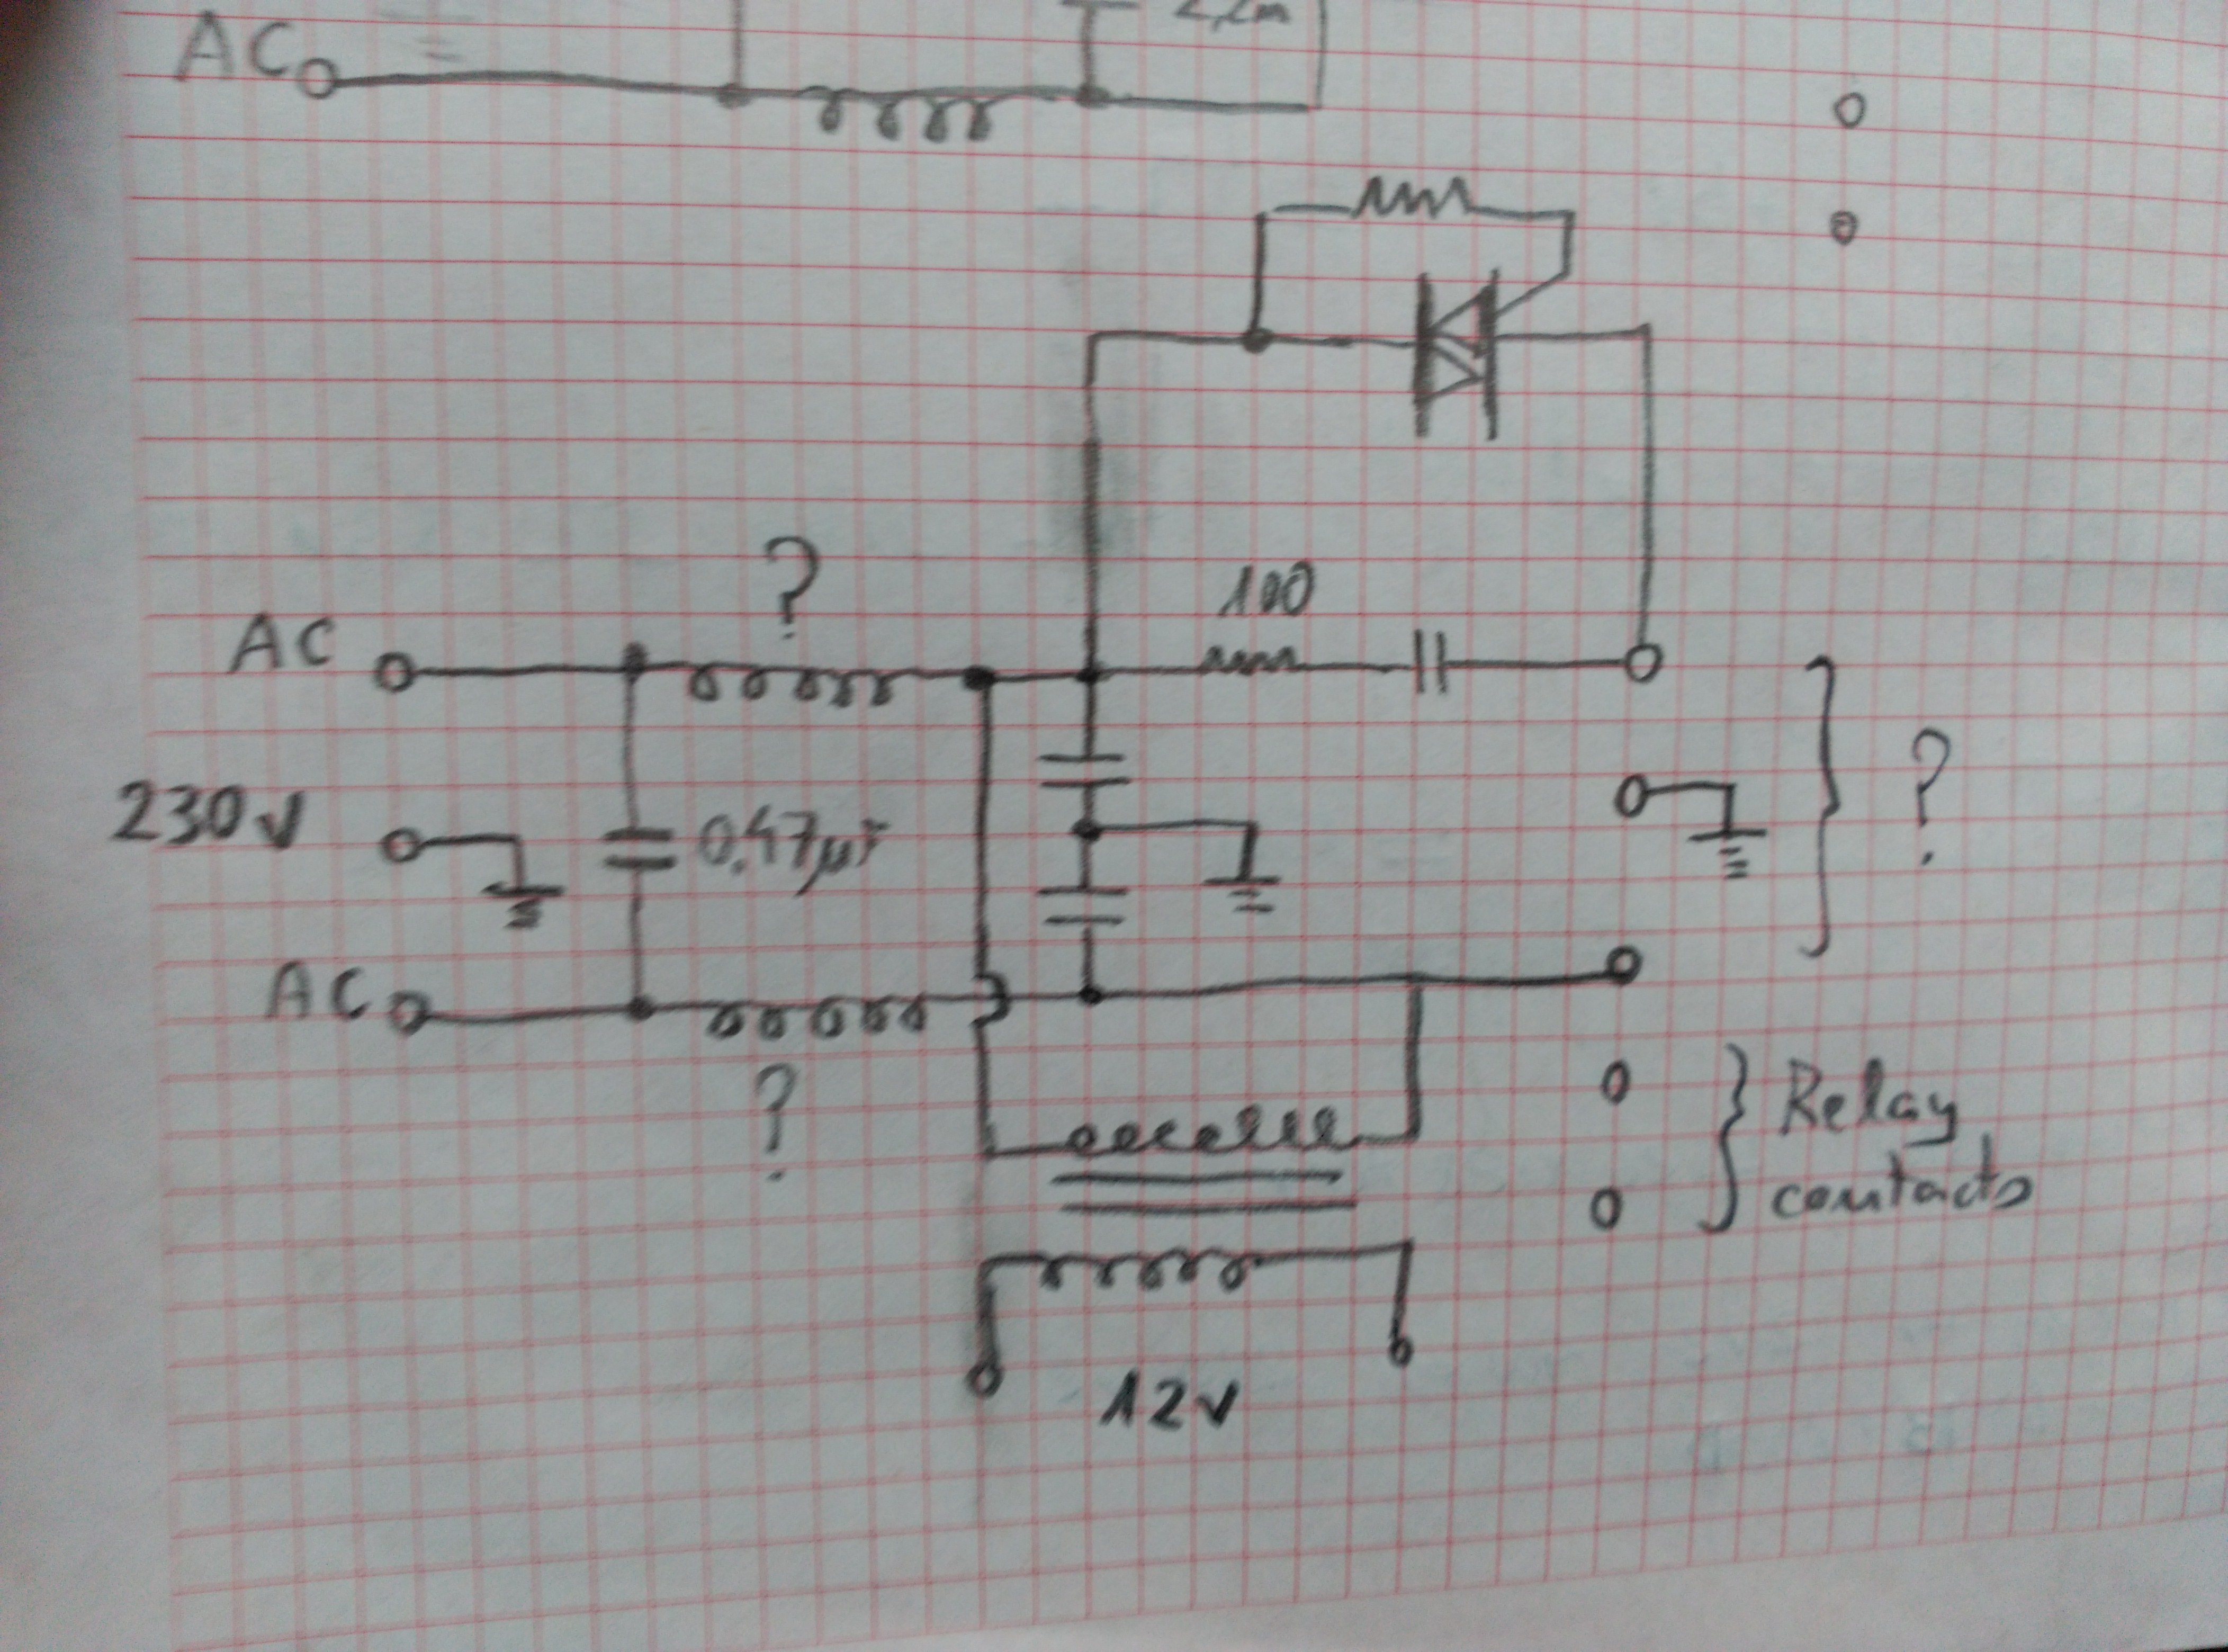 AC
?
100
AC
230v
0,47µF
?
AC
?
Relay
contacts
12v